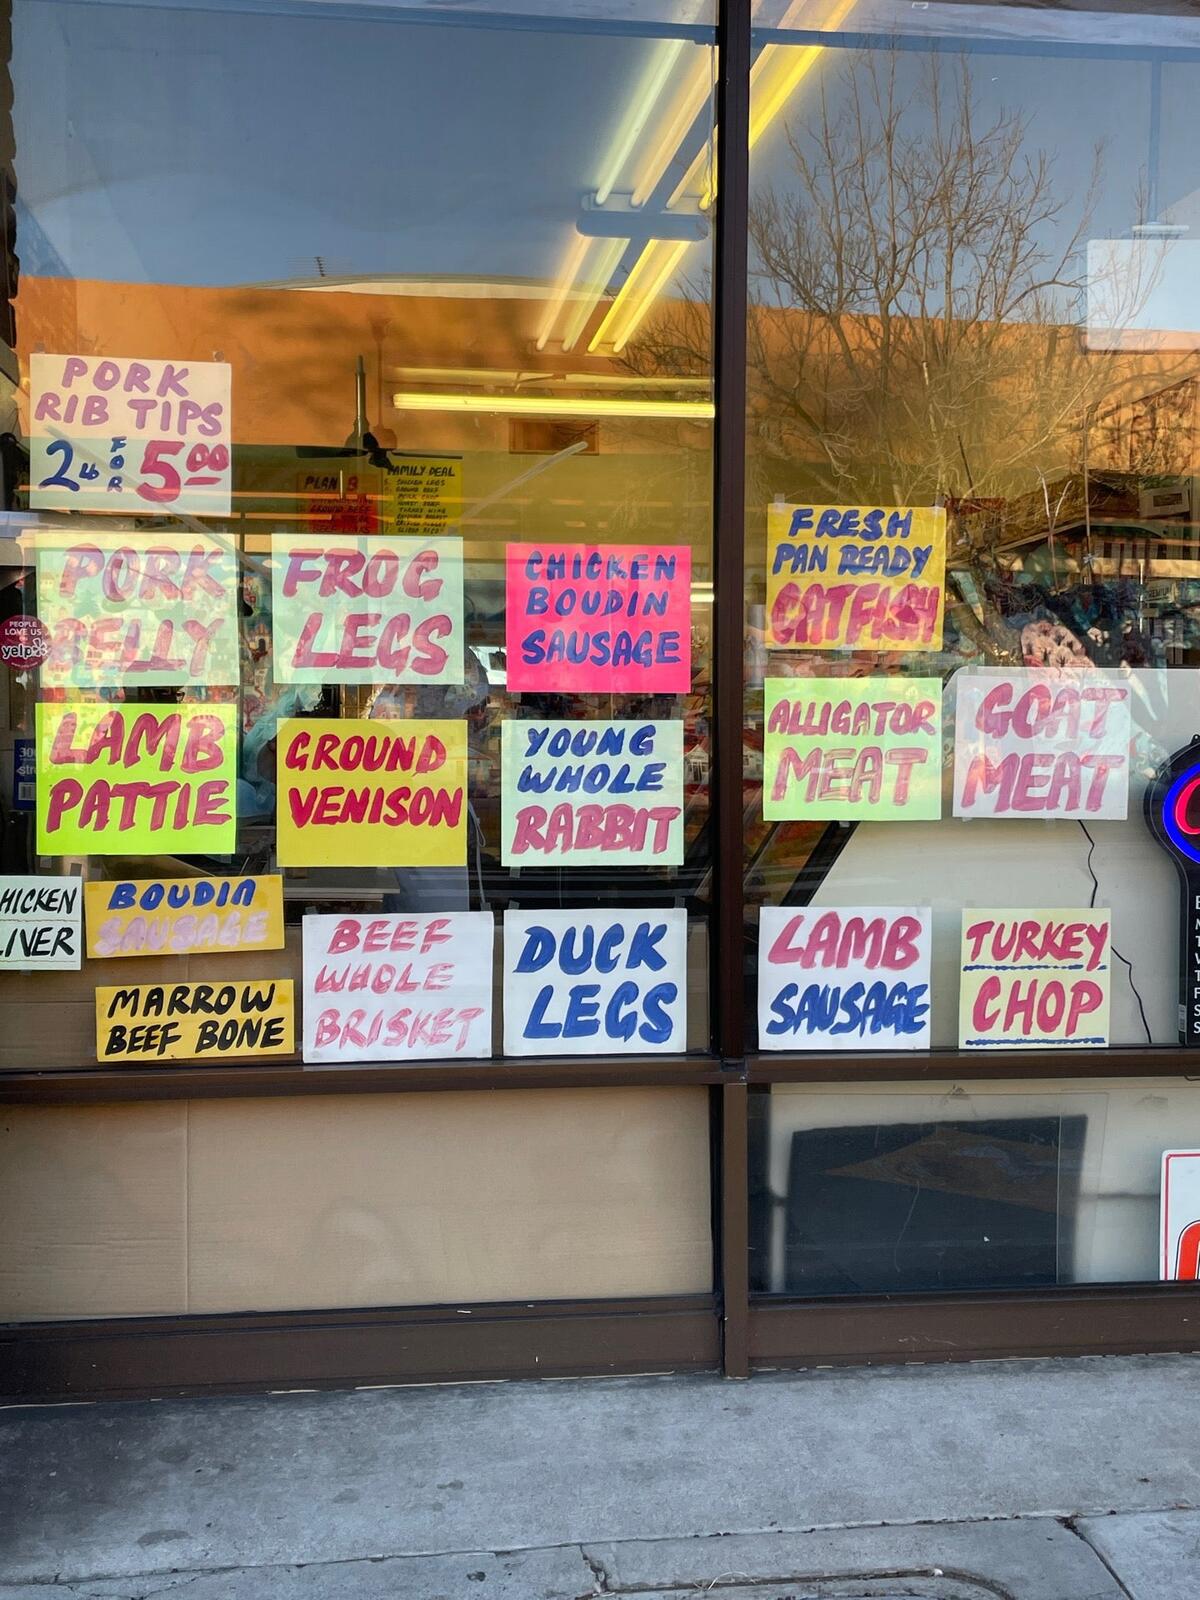 PORK
RIB TIPS
2 lb FOR 5.00
PLAN B
GROUND BEEF
FAMILY DEAL
CHICKEN LEGS
GROUND BEEF
PORK CHOP
PEOPLE
LOVE US
yelp
PORK
BELLY
FROG
LEGS
CHICKEN
BOUDIN
SAUSAGE
FRESH
PAN READY
CATFISH
LAMB
PATTIE
GROUND
VENISON
YOUNG
WHOLE
RABBIT
ALLIGATOR
MEAT
GOAT
MEAT
HICKEN
IVER
BOUDIN
SAUSAGE
MARROW
BEEF BONE
BEEF
WHOLE
BRISKET
DUCK
LEGS
LAMB
SAUSAGE
TURKEY
CHOP